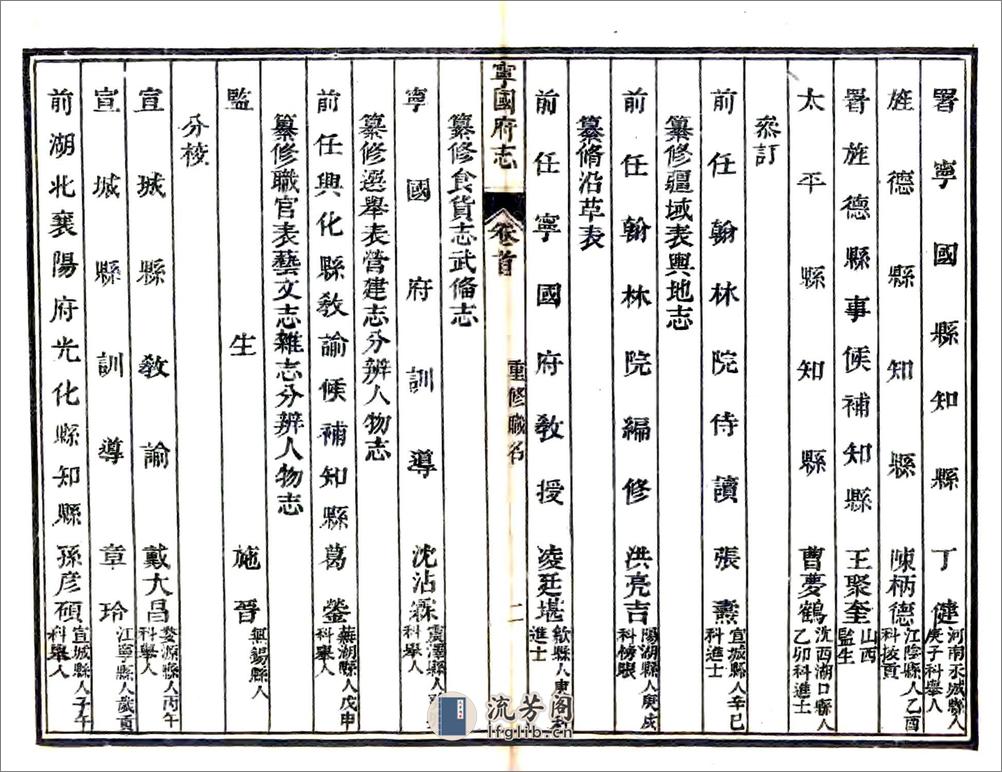 署寧國縣知縣丁健河南永城縣人庚子科舉人
旌德縣知縣陳柄德江陰縣人乙酉科拔貢
署旌德縣事候補知縣王聚奎山西監生
太平縣知縣曹夢鶴江西湖口縣人乙卯科進士
叅訂
前任翰林院侍讀張燾宣城縣人辛巳科進士
纂修疆域表輿地志
前任翰林院編修洪亮吉陽湖縣人庚戌科榜眼
纂脩沿革表
前任寧國府敎授凌廷堪歙縣人庚戌進士
寧國府志
卷首
重修職名
二
纂修食貨志武備志
寧國府訓導沈沾霖震澤縣人科舉人
纂修選舉表營建志分辨人物志
前任興化縣敎諭候補知縣葛鎣蕪湖縣人戊申科舉人
纂修職官表藝文志雜志分辨人物志
監生施晉無錫縣人
分校
宣城縣敎諭戴大昌婺源縣人丙午科舉人
宣城縣訓導章玲江寧縣人歲貢
前湖北襄陽府光化縣知縣孫彦碩宣城縣人子午科舉人
流芳阁
lfglib.cn